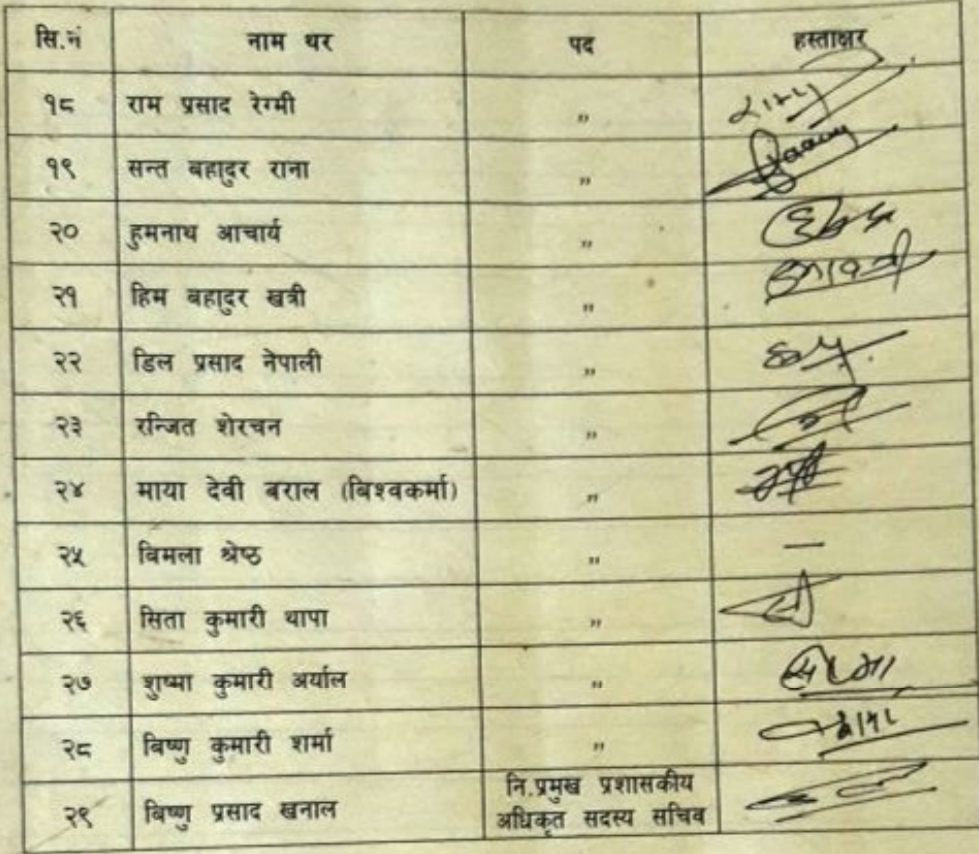 सि.नं नाम थर पद हस्ताक्षर
१८ राम प्रसाद रेग्मी ,,
१९ सन्त बहादुर राना ,,
२० हुमनाथ आचार्य ,,
२१ हिम बहादुर खत्री ,,
२२ डिल प्रसाद नेपाली ,,
२३ रन्जित शेरचन ,,
२४ माया देवी बराल (बिश्वकर्मा) ,,
२५ बिमला श्रेष्ठ ,, —
२६ सिता कुमारी थापा ,,
२७ शुष्मा कुमारी अर्याल ,,
२८ बिष्णु कुमारी शर्मा ,,
२९ बिष्णु प्रसाद खनाल नि.प्रमुख प्रशासकीय
अधिकृत सदस्य सचिव